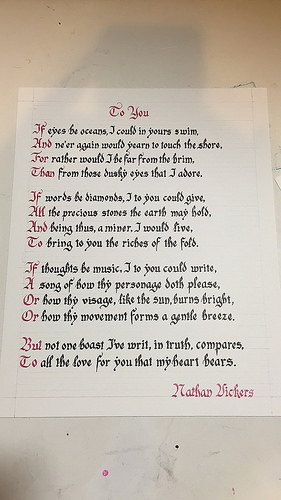 To You
If eyes be oceans, I could in yours swim,
And ne'er again would yearn to touch the shore,
For rather would I be far from the brim,
Than from those dusky eyes that I adore.
If words be diamonds, I to you could give,
All the precious stones the earth may hold,
And being thus, a miner, I would live,
To bring to you the riches of the fold.
If thoughts be music, I to you could write,
A song of how thy personage doth please,
Or how thy visage, like the sun, burns bright,
Or how thy movement forms a gentle breeze.
But not one boast I've writ, in truth, compares,
To all the love for you that my heart bears.
Nathan Vickers